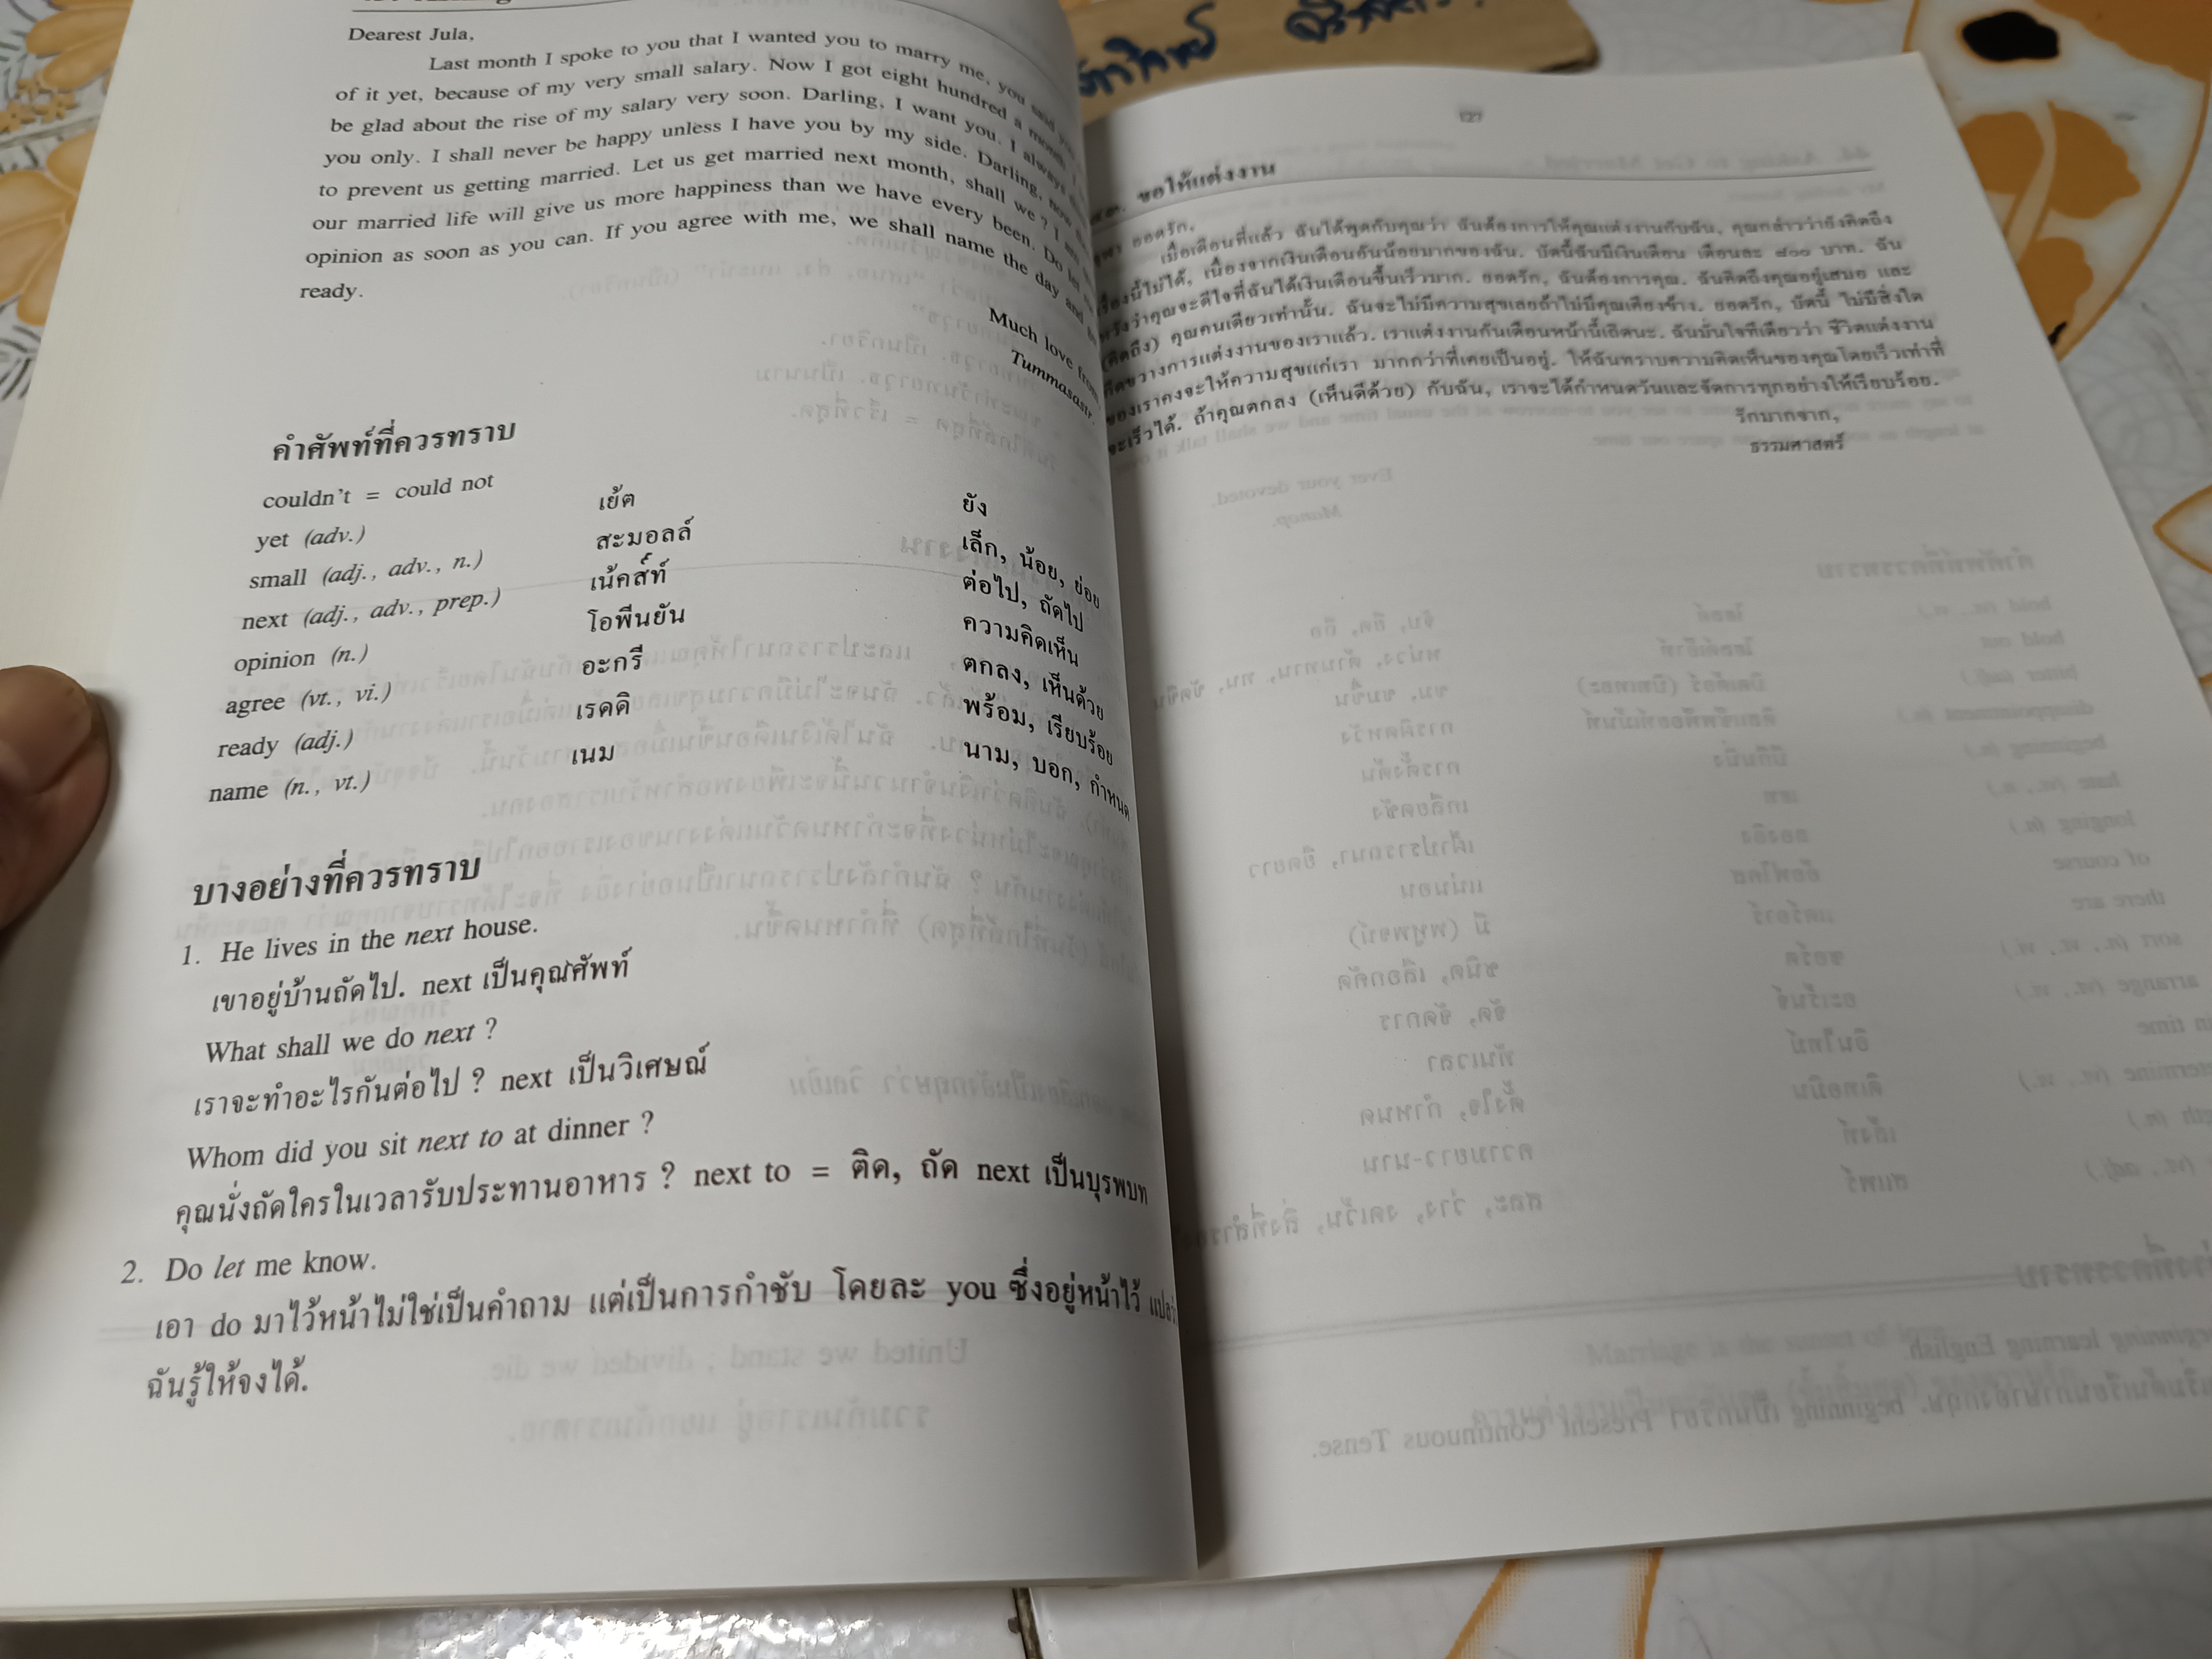 Dearest Jula,
Last month I spoke to you that I wanted you to marry me, you said you
of it yet, because of my very small salary. Now I got eight hundred a month.
be glad about the rise of my salary very soon. Darling, I want you. I always
you only. I shall never be happy unless I have you by my side. Darling, now
to prevent us getting married. Let us get married next month, shall we ? I am
our married life will give us more happiness than we have every been. Do let
opinion as soon as you can. If you agree with me, we shall name the day and
ready.
Much love from
Tummasastr.
คำศัพท์ที่ควรทราบ
couldn't = could not
yet (adv.) เย้ต ยัง
small (adj., adv., n.) สะมอลล์ เล็ก, น้อย, ย่อย
next (adj., adv., prep.) เน้คส์ท์ ต่อไป, ถัดไป
opinion (n.) โอพีนยัน ความคิดเห็น
agree (vt., vi.) อะกรี ตกลง, เห็นด้วย
ready (adj.) เรคดิ พร้อม, เรียบร้อย
name (n., vt.) เนม นาม, บอก, กำหนด
บางอย่างที่ควรทราบ
1. He lives in the next house.
เขาอยู่บ้านถัดไป. next เป็นคุณศัพท์
What shall we do next ?
เราจะทำอะไรกันต่อไป ? next เป็นวิเศษณ์
Whom did you sit next to at dinner ?
คุณนั่งถัดใครในเวลารับประทานอาหาร ? next to = ติด, ถัด next เป็นบุรพบท
2. Do let me know.
เอา do มาไว้หน้าไม่ใช่เป็นคำถาม แต่เป็นการกำชับ โดยละ you ซึ่งอยู่หน้าไว้
ฉันรู้ให้จงได้.
127
๔๓. ขอให้แต่งงาน
จุฬา ยอดรัก,
เมื่อเดือนที่แล้ว ฉันได้พูดกับคุณว่า ฉันต้องการให้คุณแต่งงานกับฉัน, คุณกล่าวว่ายังคิดถึง
เรื่องนี้ไม่ได้, เนื่องจากเงินเดือนอันน้อยมากของฉัน. บัดนี้ฉันมีเงินเดือน เดือนละ ๘๐๐ บาท. ฉัน
หวังว่าคุณจะดีใจที่ฉันได้เงินเดือนขึ้นเร็วมาก. ยอดรัก, ฉันต้องการคุณ. ฉันคิดถึงคุณอยู่เสมอ และ
(คิดถึง) คุณคนเดียวเท่านั้น. ฉันจะไม่มีความสุขเลยถ้าไม่มีคุณเคียงข้าง. ยอดรัก, บัดนี้ ไม่มีสิ่งใด
กีดขวางการแต่งงานของเราแล้ว. เราแต่งงานกันเดือนหน้านี้เถิดนะ. ฉันมั่นใจทีเดียวว่า ชีวิตแต่งงาน
ของเราคงจะให้ความสุขแก่เรา มากกว่าที่เคยเป็นอยู่. ให้ฉันทราบความคิดเห็นของคุณโดยเร็วเท่าที่
จะเร็วได้. ถ้าคุณตกลง (เห็นดีด้วย) กับฉัน, เราจะได้กำหนดวันและจัดการทุกอย่างให้เรียบร้อย.
รักมากจาก,
ธรรมศาสตร์